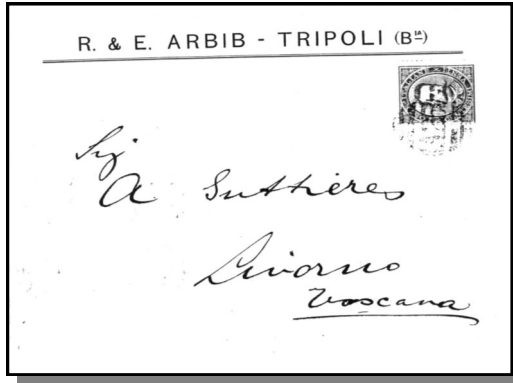 R. & E. ARBIB - TRIPOLI (Bia)
Sig
A Suttieres
Livorno
Toscana